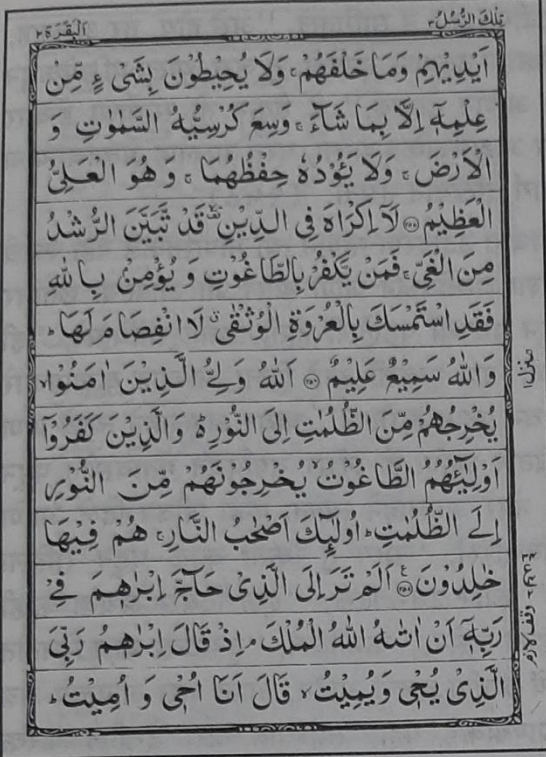 تِلْكَ الرُّسُلُ ٣
اَلْبَقَرَة ٢
اَيْدِيْهِمْ وَمَا خَلْفَهُمْ ۚ وَلَا يُحِيْطُوْنَ بِشَىْءٍ مِّنْ
عِلْمِهٖٓ اِلَّا بِمَا شَآءَ ۚ وَسِعَ كُرْسِيُّهُ السَّمٰوٰتِ وَ
الْاَرْضَ ۚ وَلَا يَـُٔوْدُهٗ حِفْظُهُمَا ۚ وَ هُوَ الْعَلِىُّ
الْعَظِيْمُ ﴿۲۵۵﴾ لَآ اِكْرَاهَ فِى الدِّيْنِ ۙ قَدْ تَّبَيَّنَ الرُّشْدُ
مِنَ الْغَىِّ ۚ فَمَنْ يَّكْفُرْ بِالطَّاغُوْتِ وَ يُؤْمِنْۢ بِاللّٰهِ
فَقَدِ اسْتَمْسَكَ بِالْعُرْوَةِ الْوُثْقٰى ۗ لَا انْفِصَامَ لَهَا ؕ
وَاللّٰهُ سَمِيْعٌ عَلِيْمٌ ﴿۲۵۶﴾ اَللّٰهُ وَلِىُّ الَّذِيْنَ اٰمَنُوْا ۙ
يُخْرِجُهُمْ مِّنَ الظُّلُمٰتِ اِلَى النُّوْرِ ؕ وَالَّذِيْنَ كَفَرُوْٓا
اَوْلِيٰٓـُٔهُمُ الطَّاغُوْتُ ۙ يُخْرِجُوْنَهُمْ مِّنَ النُّوْرِ
اِلَى الظُّلُمٰتِ ؕ اُولٰٓئِكَ اَصْحٰبُ النَّارِ ۚ هُمْ فِيْهَا
خٰلِدُوْنَ ﴿۲۵۷﴾ اَلَمْ تَرَ اِلَى الَّذِىْ حَآجَّ اِبْرٰهٖمَ فِىْ
رَبِّهٖٓ اَنْ اٰتٰىهُ اللّٰهُ الْمُلْكَ ۘ اِذْ قَالَ اِبْرٰهٖمُ رَبِّىَ
الَّذِىْ يُحْىٖ وَيُمِيْتُ ۙ قَالَ اَنَا اُحْىٖ وَ اُمِيْتُ ؕ
منزل ١
وقف لازم